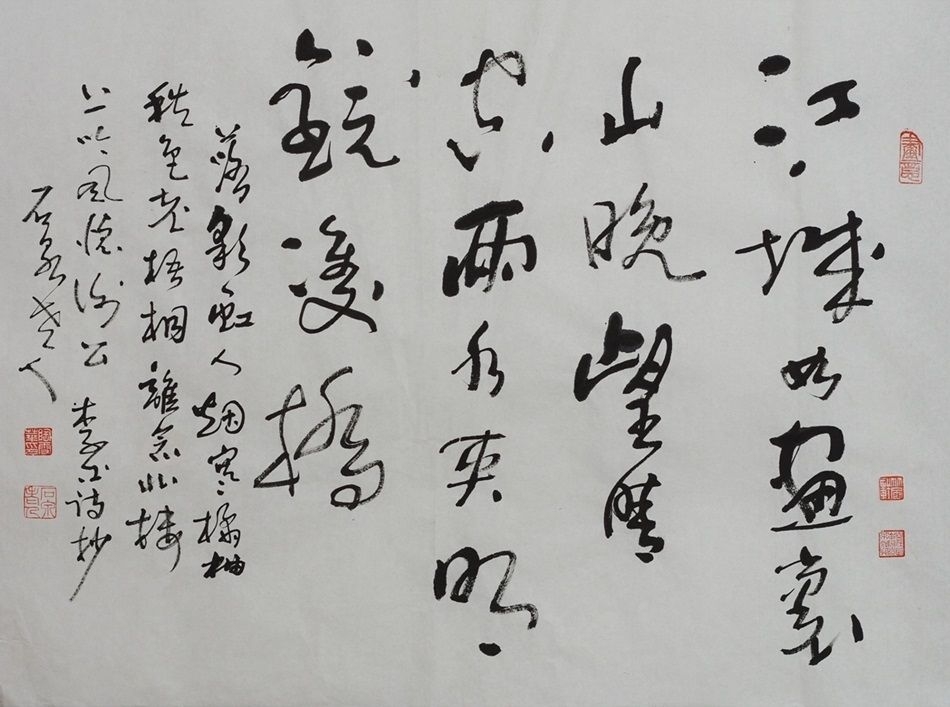 江城如畫裏
山晚望晴
空兩水夾明
鏡雙橋
落彩虹人烟寒橘柚
秋色老梧桐誰念北樓
上臨風懷謝公 李白詩抄
石泉老人